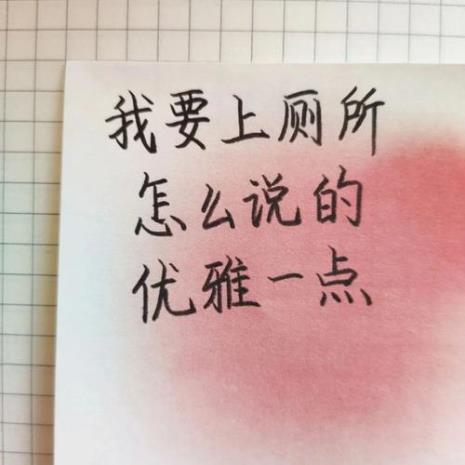 我要上厕所
怎么说的
优雅一点